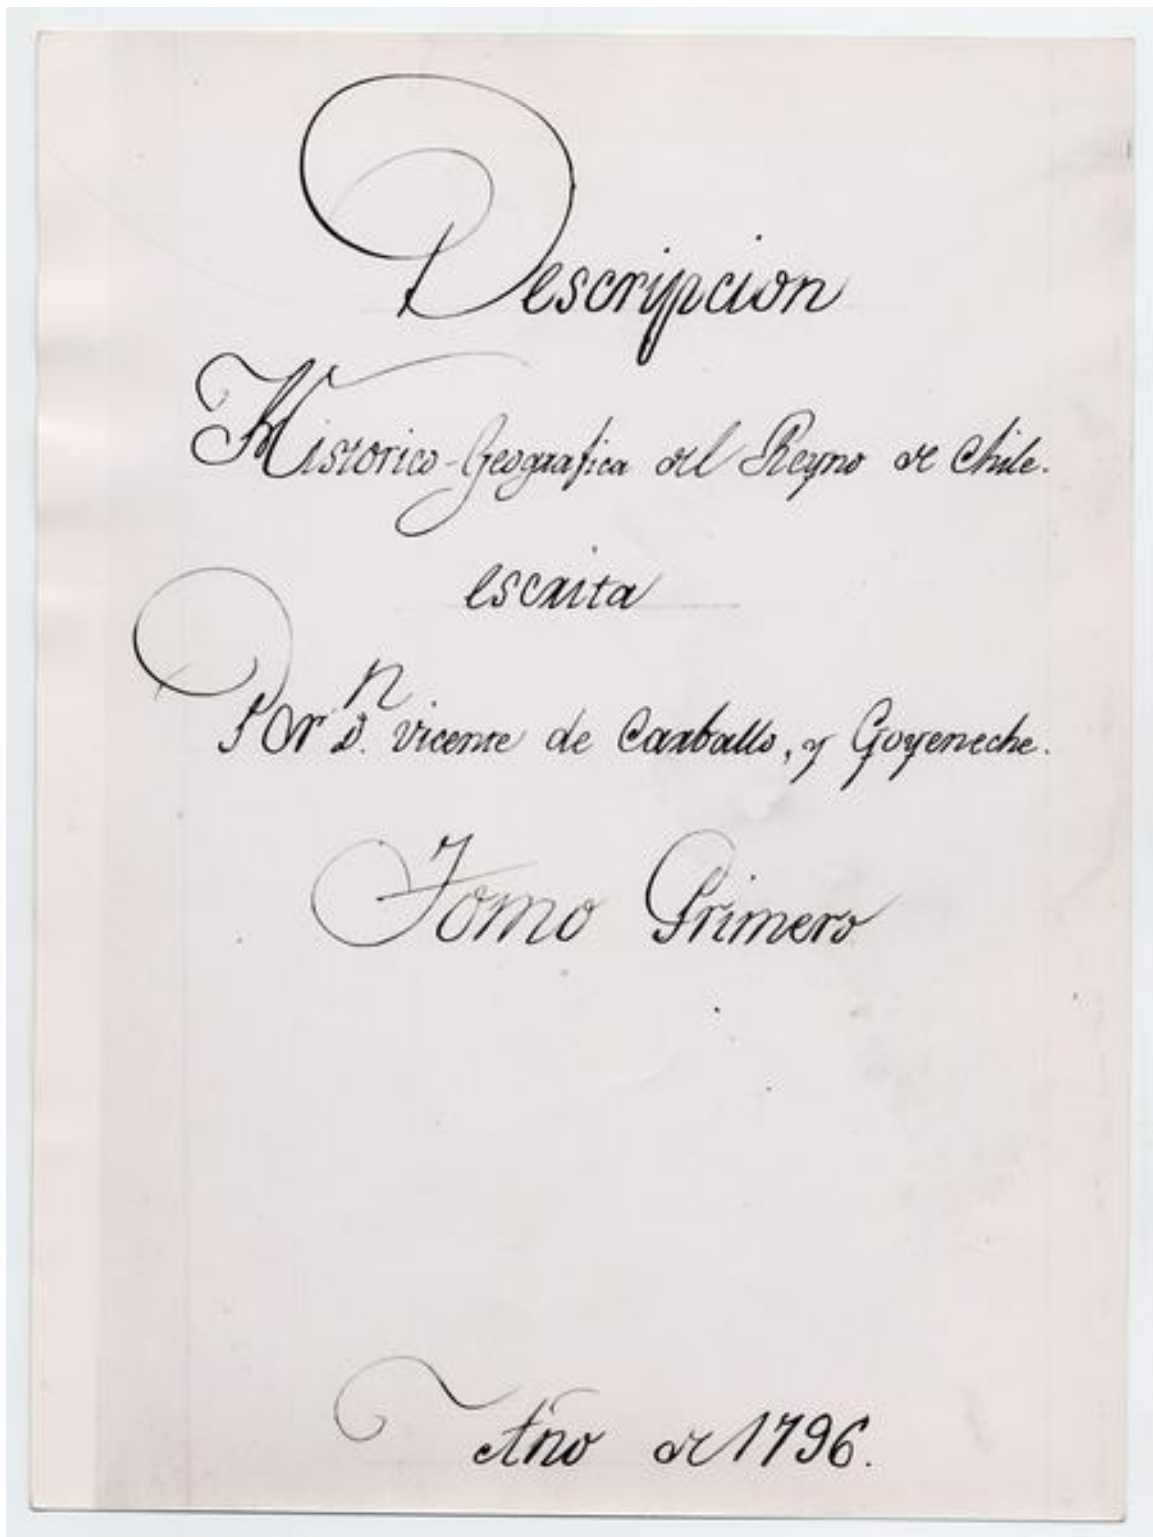 Descripcion
Historico-Geografica del Reyno de Chile.
escrita
Por Dn. Vicente de Carballo, y Goyeneche.
Tomo Primero
Año de 1796.